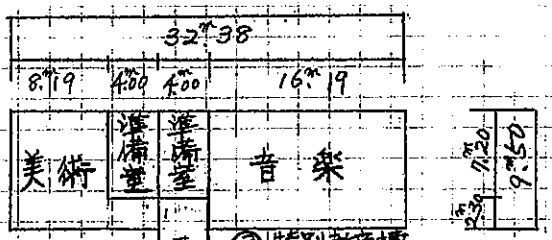 32.ᵐ38
8.ᵐ19 4.ᵐ00 4.ᵐ00 16.ᵐ19
美術 準備室 準備室 音楽
7.ᵐ20 9.ᵐ50
2.ᵐ30